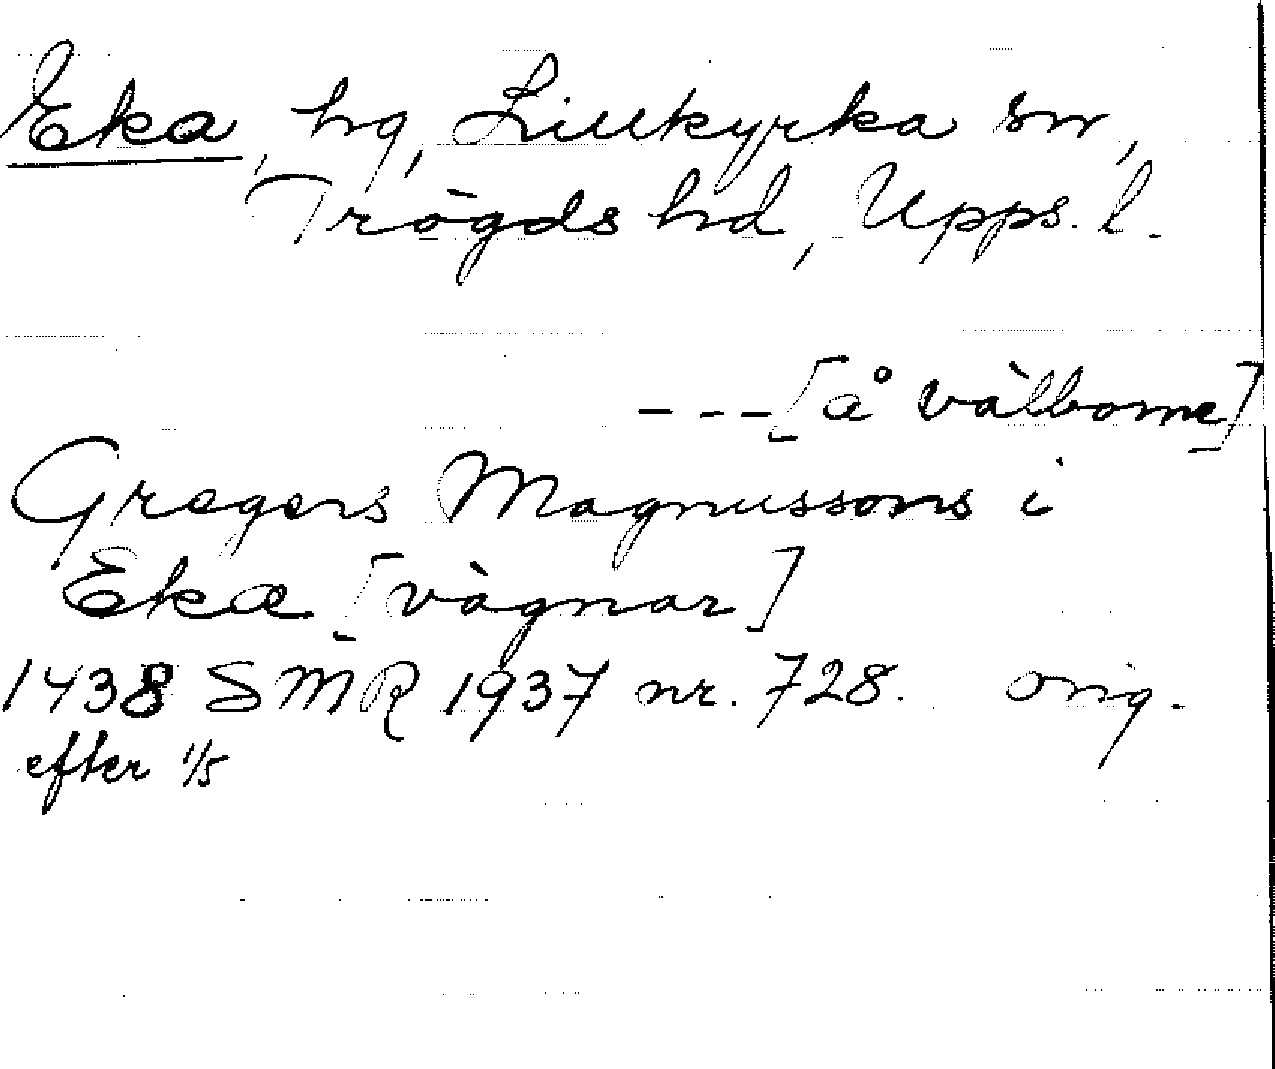 Eka, hg, Lillkyrka sn,
Trögds hd, Upps. l.
---[å välborne]
Gregers Magnussons i
Eka [vägnar]
1438 SMR 1937 nr. 728. orig.
efter 1/5